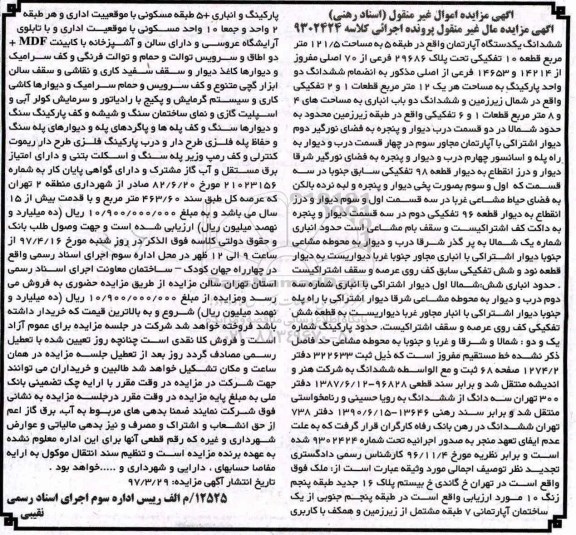 آگهی مزایده اموال غیر منقول (اسناد رهنی)
آگهی مزایده مال غیر منقول پرونده اجرائی کلاسه ۹۳۰۲۴۲۴
ششدانگ یکدستگاه آپارتمان واقع در طبقه ۵ به مساحت ۱۲۱/۵ متر
مربع قطعه ۱۰ تفکیکی تحت پلاک ۲۹۶۸۶ فرعی از ۷۰ اصلی مفروز
از ۱۴۲۱۴ و ۱۴۶۵۳ فرعی از اصلی مذکور به انضمام ششدانگ دو
واحد پارکینگ به مساحت هر یک ۱۲ متر مربع قطعات ۱ و ۲ تفکیکی
واقع در شمال زیرزمین و ششدانگ دو باب انباری به مساحت های ۴
و ۸ متر مربع قطعات ۱ و ۶ تفکیکی واقع در طبقه زیرزمین محدود به
حدود شمالا در دو قسمت درب دیوار و پنجره به فضای نورگیر دوم
دیوار اشتراکی با آپارتمان مجاور سوم در چهار قسمت درب و دیوار به
راه پله و اسانسور چهارم درب و دیوار و پنجره به فضای نورگیر شرقا
دیوار و درز انقطاع به دیوار قطعه ۹۸ تفکیکی سابق جنوبا در سه
قسمت که اول و سوم بصورت پخی دیوار و پنجره و لبه نرده بالکن
به فضای حیاط مشاعی غربا در سه قسمت اول و سوم دیوار و درز
انقطاع به دیوار قطعه ۹۶ تفکیکی دوم در سه قسمت دیوار و پنجره
به داکت کف اشتراکیست و سقف بام مشاعی است حدود انباری
شماره یک شمالا به پر گذر شرقا درب و دیوار به محوطه مشاعی
جنوبا دیوار اشتراکی با انباری مجاور جنوبا غربا دیواریست به دیوار
قطعه نود و شش تفکیکی سابق کف روی عرصه و سقف اشتراکیست
. حدود انباری شش:شمالا اول دیوار اشتراکی با انباری شماره سه
دوم درب و دیوار به محوطه مشاعی شرقا دیوار اشتراکی با راه پله
جنوبا دیوار اشتراکی با انبار مجاور غربا دیواریست به قطعه شش
تفکیکی کف روی عرصه و سقف اشتراکیست. حدود پارکینگ شماره
یک و دو : شمالا و شرقا و غربا و جنوبا به محوطه مشاعی حد فاصل
ذکر نشده خط مستقیم مفروز است که ذیل ثبت ۳۲۲۶۳۳ دفتر
۱۲۷۴/۲ صفحه ۶۸ ثبت و مع الواسطه ششدانگ به شرکت هنر و
اندیشه منتقل شد و برابر سند قطعی ۹۶۸۲۸-۱۳۸۷/۶/۱۲ دفتر
۳۰۰ تهران سه دانگ از ششدانگ به رویا حسینی و رنامخواستی
منتقل شد و برابر سند رهنی ۱۳۶۴۶-۱۳۹۰/۶/۱۵ دفتر ۷۳۸
تهران ششدانگ در رهن بانک رفاه کارگران قرار گرفت که به علت
عدم ایفای تعهد منجر به صدور اجرائیه تحت شماره ۹۳۰۲۴۲۴ شده
است و برابر نظریه مورخ ۹۶/۱۱/۴ کارشناس رسمی دادگستری
تجدید نظر توصیف اجمالی مورد وثیقه عبارت است از: ملک فوق
واقع است در تهران خ گاندی خ بیستم پلاک ۱۶ جدید طبقه پنجم
زنگ ۱۰ مورد ارزیابی واقع است در طبقه پنجم جنوبی از یک
ساختمان آپارتمانی ۷ طبقه مشتمل از زیرزمین و همکف با کاربری
پارکینگ و انباری +۵ طبقه مسکونی با موقعییت اداری و هر طبقه
۲ واحد و جمعا ۱۰ واحد مسکونی با موقعیت اداری و با تابلوی
آرایشگاه عروسی و دارای سالن و آشپزخانه با کابینت MDF +
دو اطاق و سرویس توالت و حمام و توالت فرنگی و کف سرامیک
و دیوارها کاغذ دیوار و سقف سفید کاری و نقاشی و سقف سالن
ابزار گچی متنوع و کف سرویس و حمام سرامیک و دیوارها کاشی
کاری و سیستم گرمایش و پکیج با رادیاتور و سرمایش کولر آبی و
اسپلیت گازی و نمای ساختمان سنگ و شیشه و کف پارکینگ سنگ
و دیوارها سنگ و کف پله ها و پاگردهای پله و دیوارهای پله سنگ
و حفاظ پله فلزی طرح دار و درب پارکینگ فلزی طرح دار ریموت
کنترلی و کف رمپ وزیر پله سنگ و اسکلت بتنی و دارای امتیاز
برق مستقل و آب گاز مشترک و دارای گواهی پایان کار به شماره
۲۱۰۲۳۱۵۶ مورخ ۸۲/۶/۲۰ صادر از شهرداری منطقه ۲ تهران
که عرصه کل طبق سند ۴۶۳/۶۰ متر مربع و با قدمت بیش از ۱۵
سال می باشد و به مبلغ ۱۰/۹۰۰/۰۰۰/۰۰۰ ریال (ده میلیارد و
نهصد میلیون ریال) ارزیابی شده است و جهت وصول طلب بانک
و حقوق دولتی کلاسه فوق الذکر در روز شنبه مورخ ۹۷/۴/۱۶ از
ساعت ۹ الی ۱۲ ظهر در محل اداره سوم اجرای اسناد رسمی واقع
در چهارراه جهان کودک – ساختمان معاونت اجرای اسناد رسمی
استان تهران سالن مزایده از طریق مزایده حضوری به فروش می
رسد ومزایده از مبلغ ۱۰/۹۰۰/۰۰۰/۰۰۰ ریال (ده میلیارد و
نهصد میلیون ریال) شروع و به بالاترین قیمت که خریدار داشته
باشد فروخته خواهد شد شرکت در جلسه مزایده برای عموم آزاد
است و فروش کلا نقدی است چنانچه روز تعیین شده با تعطیل
رسمی مصادف گردد روز بعد از تعطیل جلسه مزایده در همان
ساعت و مکان تشکیل خواهد شد طالبین و خریداران می توانند
جهت شرکت در مزایده در وقت مقرر با ارایه چک تضمینی بانک
ملی به مبلغ پایه مزایده در وقت مقرر درجلسه مزایده به نشانی
فوق شرکت نمایند ضمنا بدهی های مربوط به آب، برق گاز اعم
از حق انشعاب و اشتراک و مصرف و نیز بدهی مالیاتی و عوارض
شهرداری و غیره که رقم قطعی آنها برای این اداره معلوم نشده
به عهده برنده مزایده است و تنظیم سند انتقال موکول به ارایه
مفاصا حسابهای ، دارایی و شهرداری و .....خواهد بود .
تاریخ انتشار آگهی مزایده: ۹۷/۳/۲۹
۱۲۵۲۵/م الف رییس اداره سوم اجرای اسناد رسمی
نقیبی